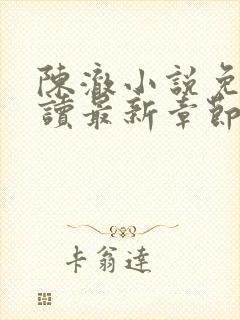 陳澈小說免
讀最新章節
卡翁達